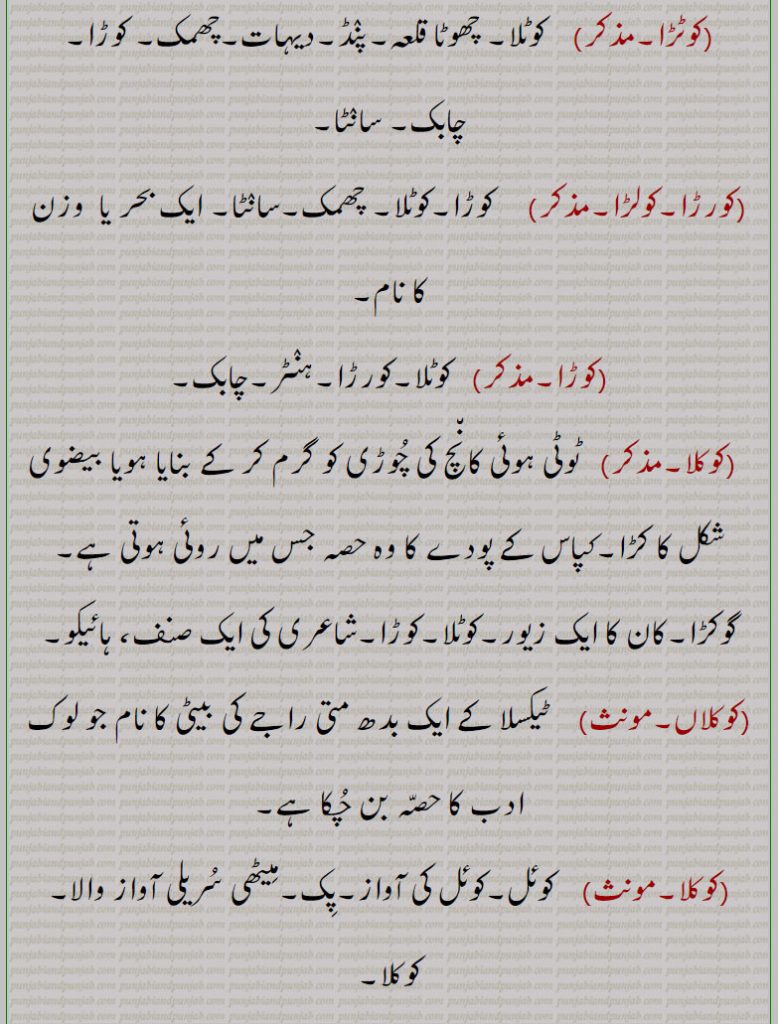 (کوٹڑا۔مذکر) کوٹلا۔ چھوٹا قلعہ۔پنْڈ۔دیہات۔چھمک۔کوڑا۔
چابک۔ سانٹا۔
(کورڑا۔کولڑا۔مذکر) کوڑا۔کوٹلا۔چھمک۔سانٹا۔ ایک بحر یا وزن
کا نام۔
(کوڑا۔مذکر) کوٹلا۔کورڑا۔ہنْٹر۔چابک۔
(کوکلا۔مذکر) ٹوٹی ہوئی کانْچ کی چُوڑی کو گرم کر کے بنایا ہویا بیضوی
شکل کا کڑا۔کپاس کے پودے کا وہ حصہ جس میں روئی ہوتی ہے۔
گوکڑا۔کان کا ایک زیور۔کوٹلا۔کوڑا۔شاعری کی ایک صنف، ہائیکو۔
(کوکلاں۔مونث) ٹیکسلا کے ایک بدھ متی راجے کی بیٹی کا نام جو لوک
ادب کا حصّہ بن چُکا ہے۔
(کوکلا۔مونث) کوئل۔کوئل کی آواز۔پِک۔مِیٹھی سُریلی آواز والا۔
کوکلا۔